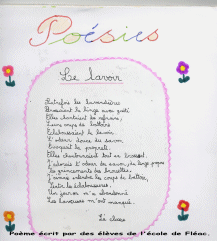 Poésies
Le lavoir
Autrefois les lavandières
Brossaient le linge avec
Elles chantaient les refrains,
Leurs coups de battoir
Éclaboussaient le lavoir.
L'odeur douce du savon
Évoquait la propreté.
Elles chantonnaient tout en brossant.
J'adorais l'odeur du savon, du linge propre
Les grincements des brouettes.
J'aimais entendre les coups de battoir,
Toutes les éclaboussures.
Un jour on m'a abandonné
Les laveuses m'ont manqué.
La classe
Poème écrit par des élèves de l'école de Fléac.